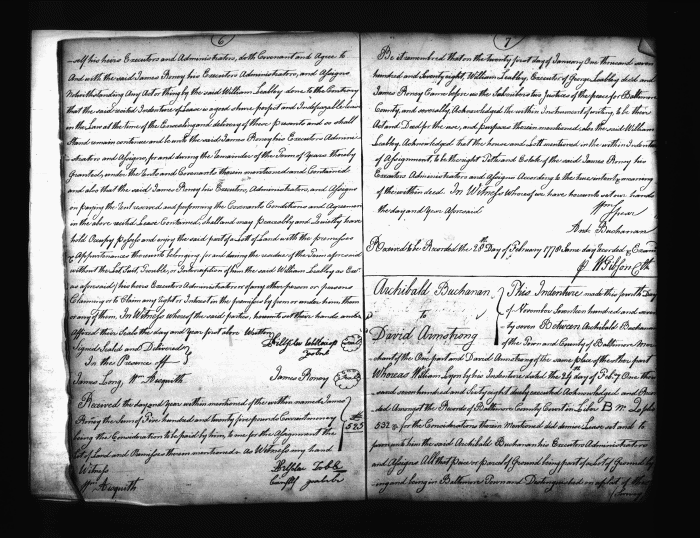 6
self his heirs Executors and Administrators, doth Covenant and Agree to
And with the said James Roney his Executors Administrators, and Assigns
Notwithstanding Any Act or thing by the said William Lubbly done to the Contrary
that the said recited Indenture of Lease is a good Sure perfect and Indefeasible Lease
in the Law at the time of the Ensealing and delivery of these presents and so shall
Stand remain continue and be unto the said James Roney his Executors Admin
istrators and Assigns for and during the Remainder of the Term of Years thereby
Granted, under the Rent and Covenants therein mentioned and Contained
and also that the said James Roney his Executors, Administrators, and Assigns
on paying the Rent reserved and performing the Covenants Conditions and Agreements
in the above recited Lease Contained, shall and may Peaceably and Quietly have
hold Occupy Possess and enjoy the said part of a Lott of Land with the premisses
& Appurtenances thereunto belonging for and during the residue of the Term aforesaid
without the Let, Suit, Trouble, or Interruption of him the said William Lubbly as Exor
as aforesaid his heirs Executors Administrators or of any other person or persons
Claiming or to Claim any Right or Interest in the premises by from or under him them
or any of them, In Witness whereof the said parties, hereunto set their hands and
Affixed their Seals the day and Year first above Written
Signed Sealed and Delivered
In the Presence off
James Long, Wm Asquith
James Roney Seal
Received the day and Year within mentioned of the within named James
Roney the Sum of Five hundred and twenty five pounds Current money
being the Consideration to be paid by him, to me for the Assignment the
Lot of Land and Premisses therein mentioned. As Witness my hand
525
Witness
Wm Asquith
7
Be it remembered that on the twenty first day of January One thousand seven
hundred and Seventy eight, William Lubbly, Executor of George Lubbly dec'd and
James Roney Came before us the Subscribers two Justices of the peace for Baltimore
County, and severally Acknowledged the within Instrument of writing to be their
Act and Deed for the use, and purposes therein mentioned also the said William
Lubbly, Acknowledged that the house and Lott mentioned in the within Indenture
of Assignment, to be the right Title and Estate of the said James Roney his
Executors Administrators and Assigns According to the true intent & meaning
of the within deed. In Witness Whereof we have hereunto set our hands
the day and Year aforesaid
Wm Spear
And Buchanan
Record to be Recorded the 28th Day of February 1778 Same day Recorded & Examd
W Gibson Clk
Archibald Buchanan
to
David Armstrong
This Indenture made this fourth Day
of November Seventeen hundred and seven
ty seven Between Archibald Buchanan
of the Town and County of Baltimore Mer
chant of the One part and David Armstrong of the same place of the other part
Whereas William Lyon by his Indenture dated the 24th of Feby One thou
sand seven hundred and Sixty eight duly executed Acknowledged and Recor
ded Amongst the Records of Baltimore County Court in Liber B No
532 & for the Considerations therein Mentioned did demise Lease, set and to
farm let to him the said Archibald Buchanan his Executors Administrators
and Assigns All that piece or parcel of Ground being part of a Lot of Ground ly
ing and being in Baltimore Town and Distinguished on a plat of the